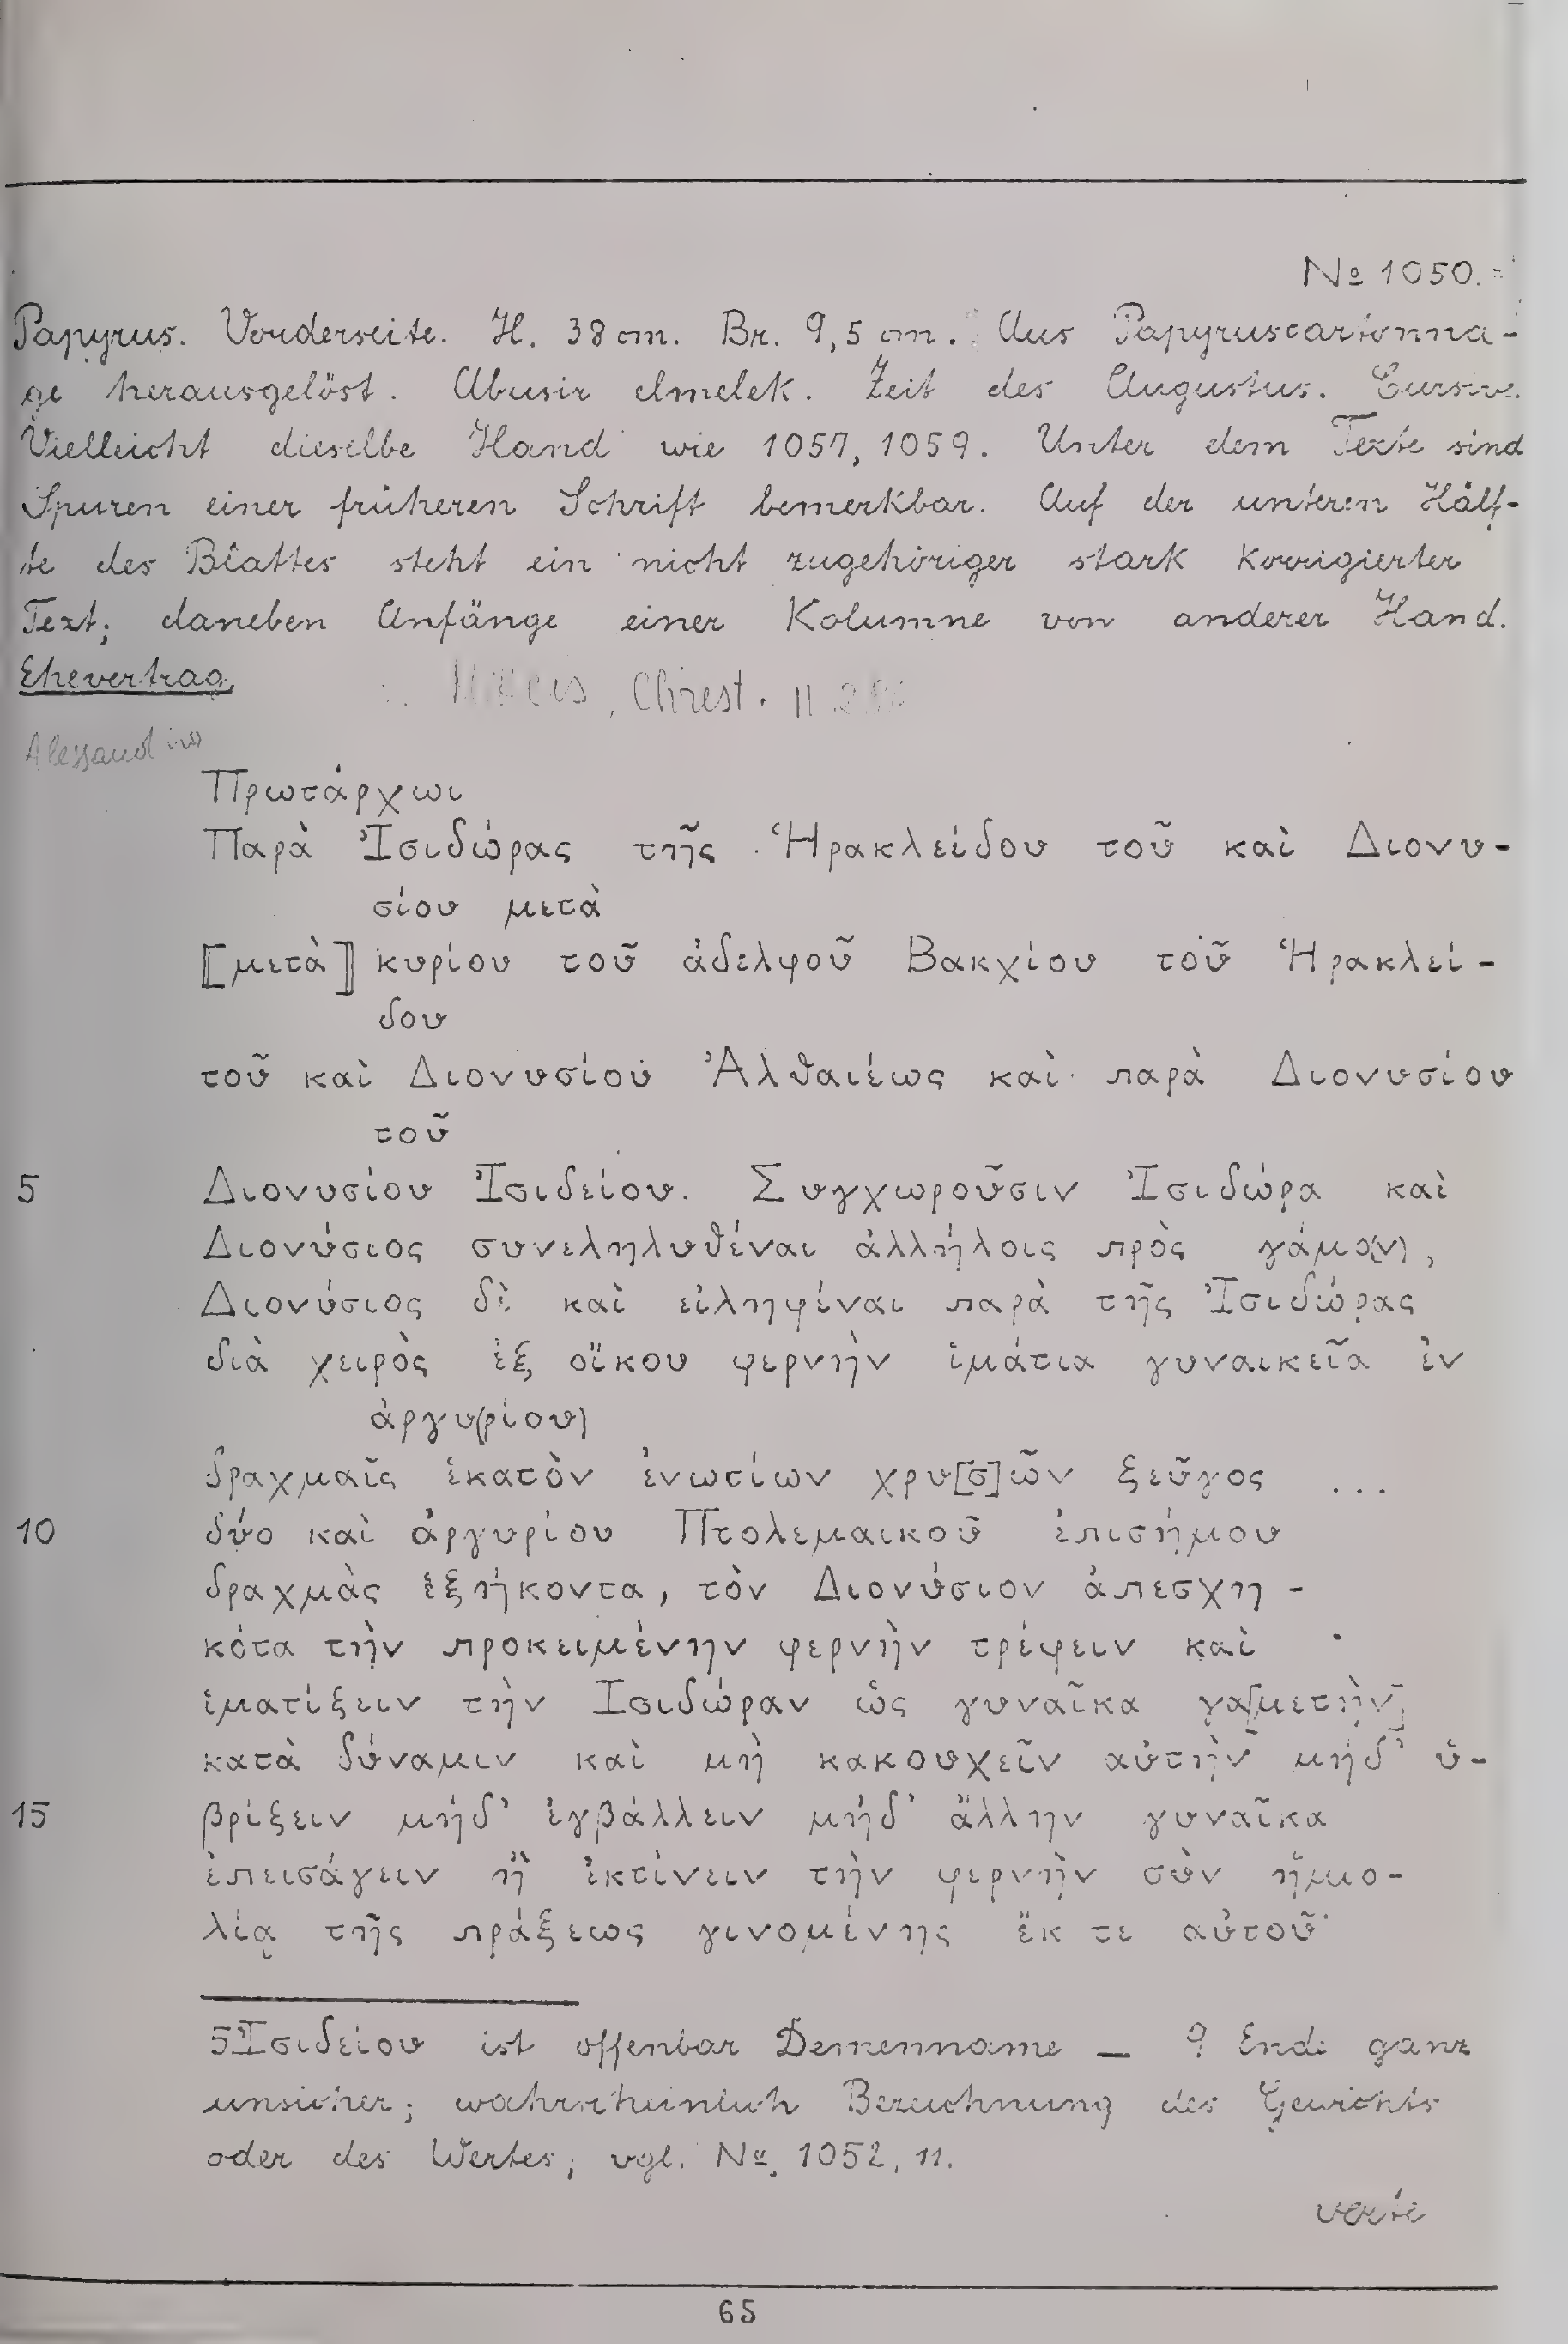 No 1050.
Papyrus. Vorderseite. H. 38 cm. Br. 9,5 cm. Aus Papyruscartonna-
ge herausgelöst. Abusir elmelek. Zeit des Augustus. Cursive.
Vielleicht dieselbe Hand wie 1057, 1059. Unter dem Texte sind
Spuren einer früheren Schrift bemerkbar. Auf der unteren Hälf-
te des Blattes steht ein nicht zugehöriger stark korrigierter
Text; daneben Anfänge einer Kolumne von anderer Hand.
Ehevertrag.
Mitteis, Christ. II
Πρωτάρχωι
Παρὰ Ἰσιδώρας τῆς Ἡρακλείδου τοῦ καὶ Διονυ-
σίου μετὰ
⟦μετὰ⟧ κυρίου τοῦ ἀδελφοῦ Βακχίου τοῦ Ἡρακλεί-
δου
τοῦ καὶ Διονυσίου Ἀλθαιέως καὶ παρὰ Διονυσίου
τοῦ
5 Διονυσίου Ἰσιδείου. Συγχωροῦσιν Ἰσιδώρα καὶ
Διονύσιος συνεληλυθέναι ἀλλήλοις πρὸς γάμο(ν),
Διονύσιος δὲ καὶ εἰληφέναι παρὰ τῆς Ἰσιδώρας
διὰ χειρὸς ἐξ οἴκου φερνὴν ἱμάτια γυναικεῖα ἐν
ἀργυ(ρίου)
δραχμαῖς ἑκατὸν ἐνωτίων χρυ[σ]ῶν ζεῦγος ...
10 δύο καὶ ἀργυρίου Πτολεμαικοῦ ἐπισήμου
δραχμὰς ἑξήκοντα, τὸν Διονύσιον ἀπεσχη-
κότα τὴν προκειμένην φερνὴν τρέφειν καὶ
ἱματίζειν τὴν Ισιδώραν ὡς γυναῖκα γα[μετὴν]
κατὰ δύναμιν καὶ μὴ κακουχεῖν αὐτὴν μήδ' ὑ-
15 βρίζειν μήδ' ἐγβάλλειν μήδ' ἄλλην γυναῖκα
ἐπεισάγειν ἢ ἐκτίνειν τὴν φερνὴν σὺν ἡμιο-
λίᾳ τῆς πράξεως γινομένης ἔκ τε αὐτοῦ
5 Ἰσιδείου ist offenbar Demenname — 9 Ende ganz
unsicher; wahrscheinlich Bezeichnung des Gewichts
oder des Wertes; vgl. No. 1052, 11.
verte
65